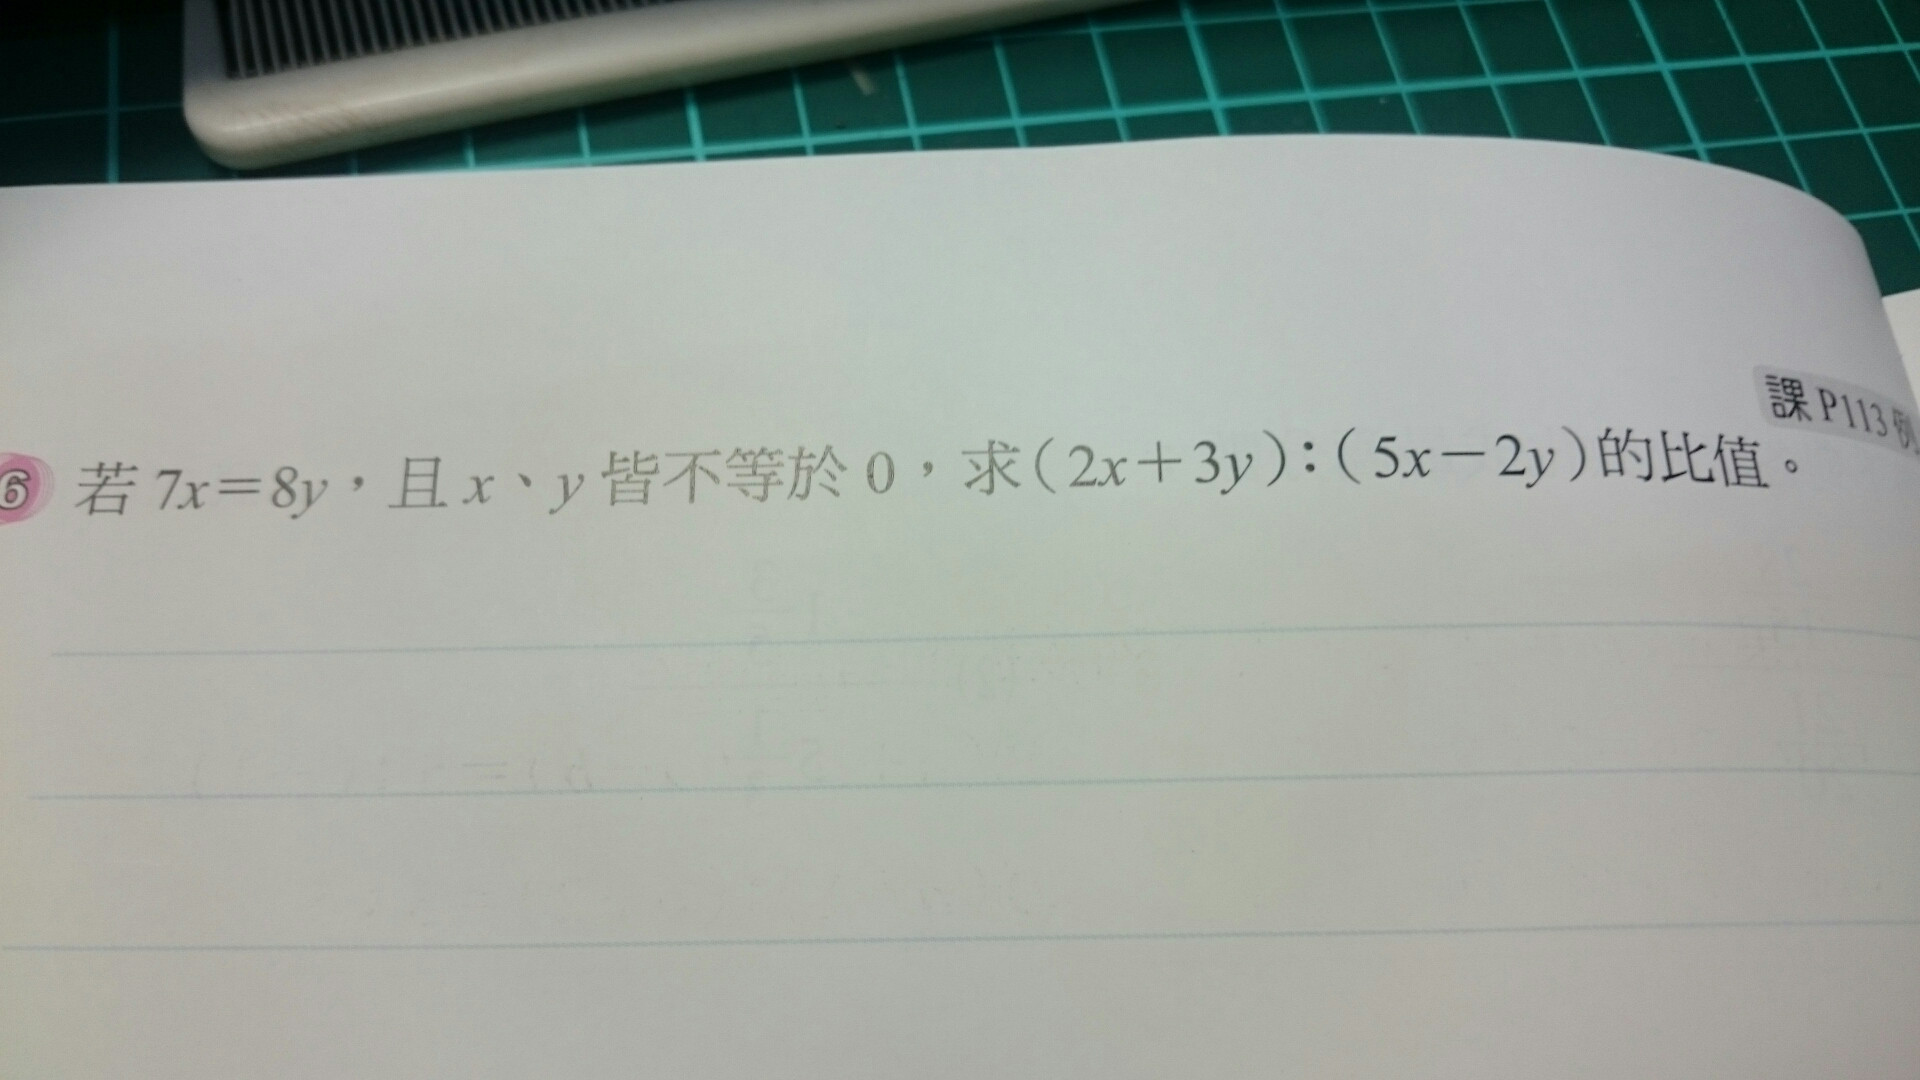 課P113例
6 若 7x=8y，且 x、y 皆不等於 0，求(2x+3y):(5x-2y)的比值。